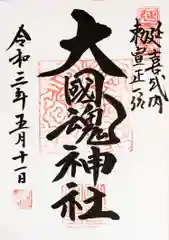 延喜式内
勅宣正一位
大國魂神社
令和二年五月十一日